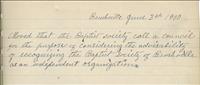 Brushville June 3rd 1890
Moved that the Baptist Society call a council
for the purpose of considering the advisability
of recognizing the Baptist Society of
as an independent organization.